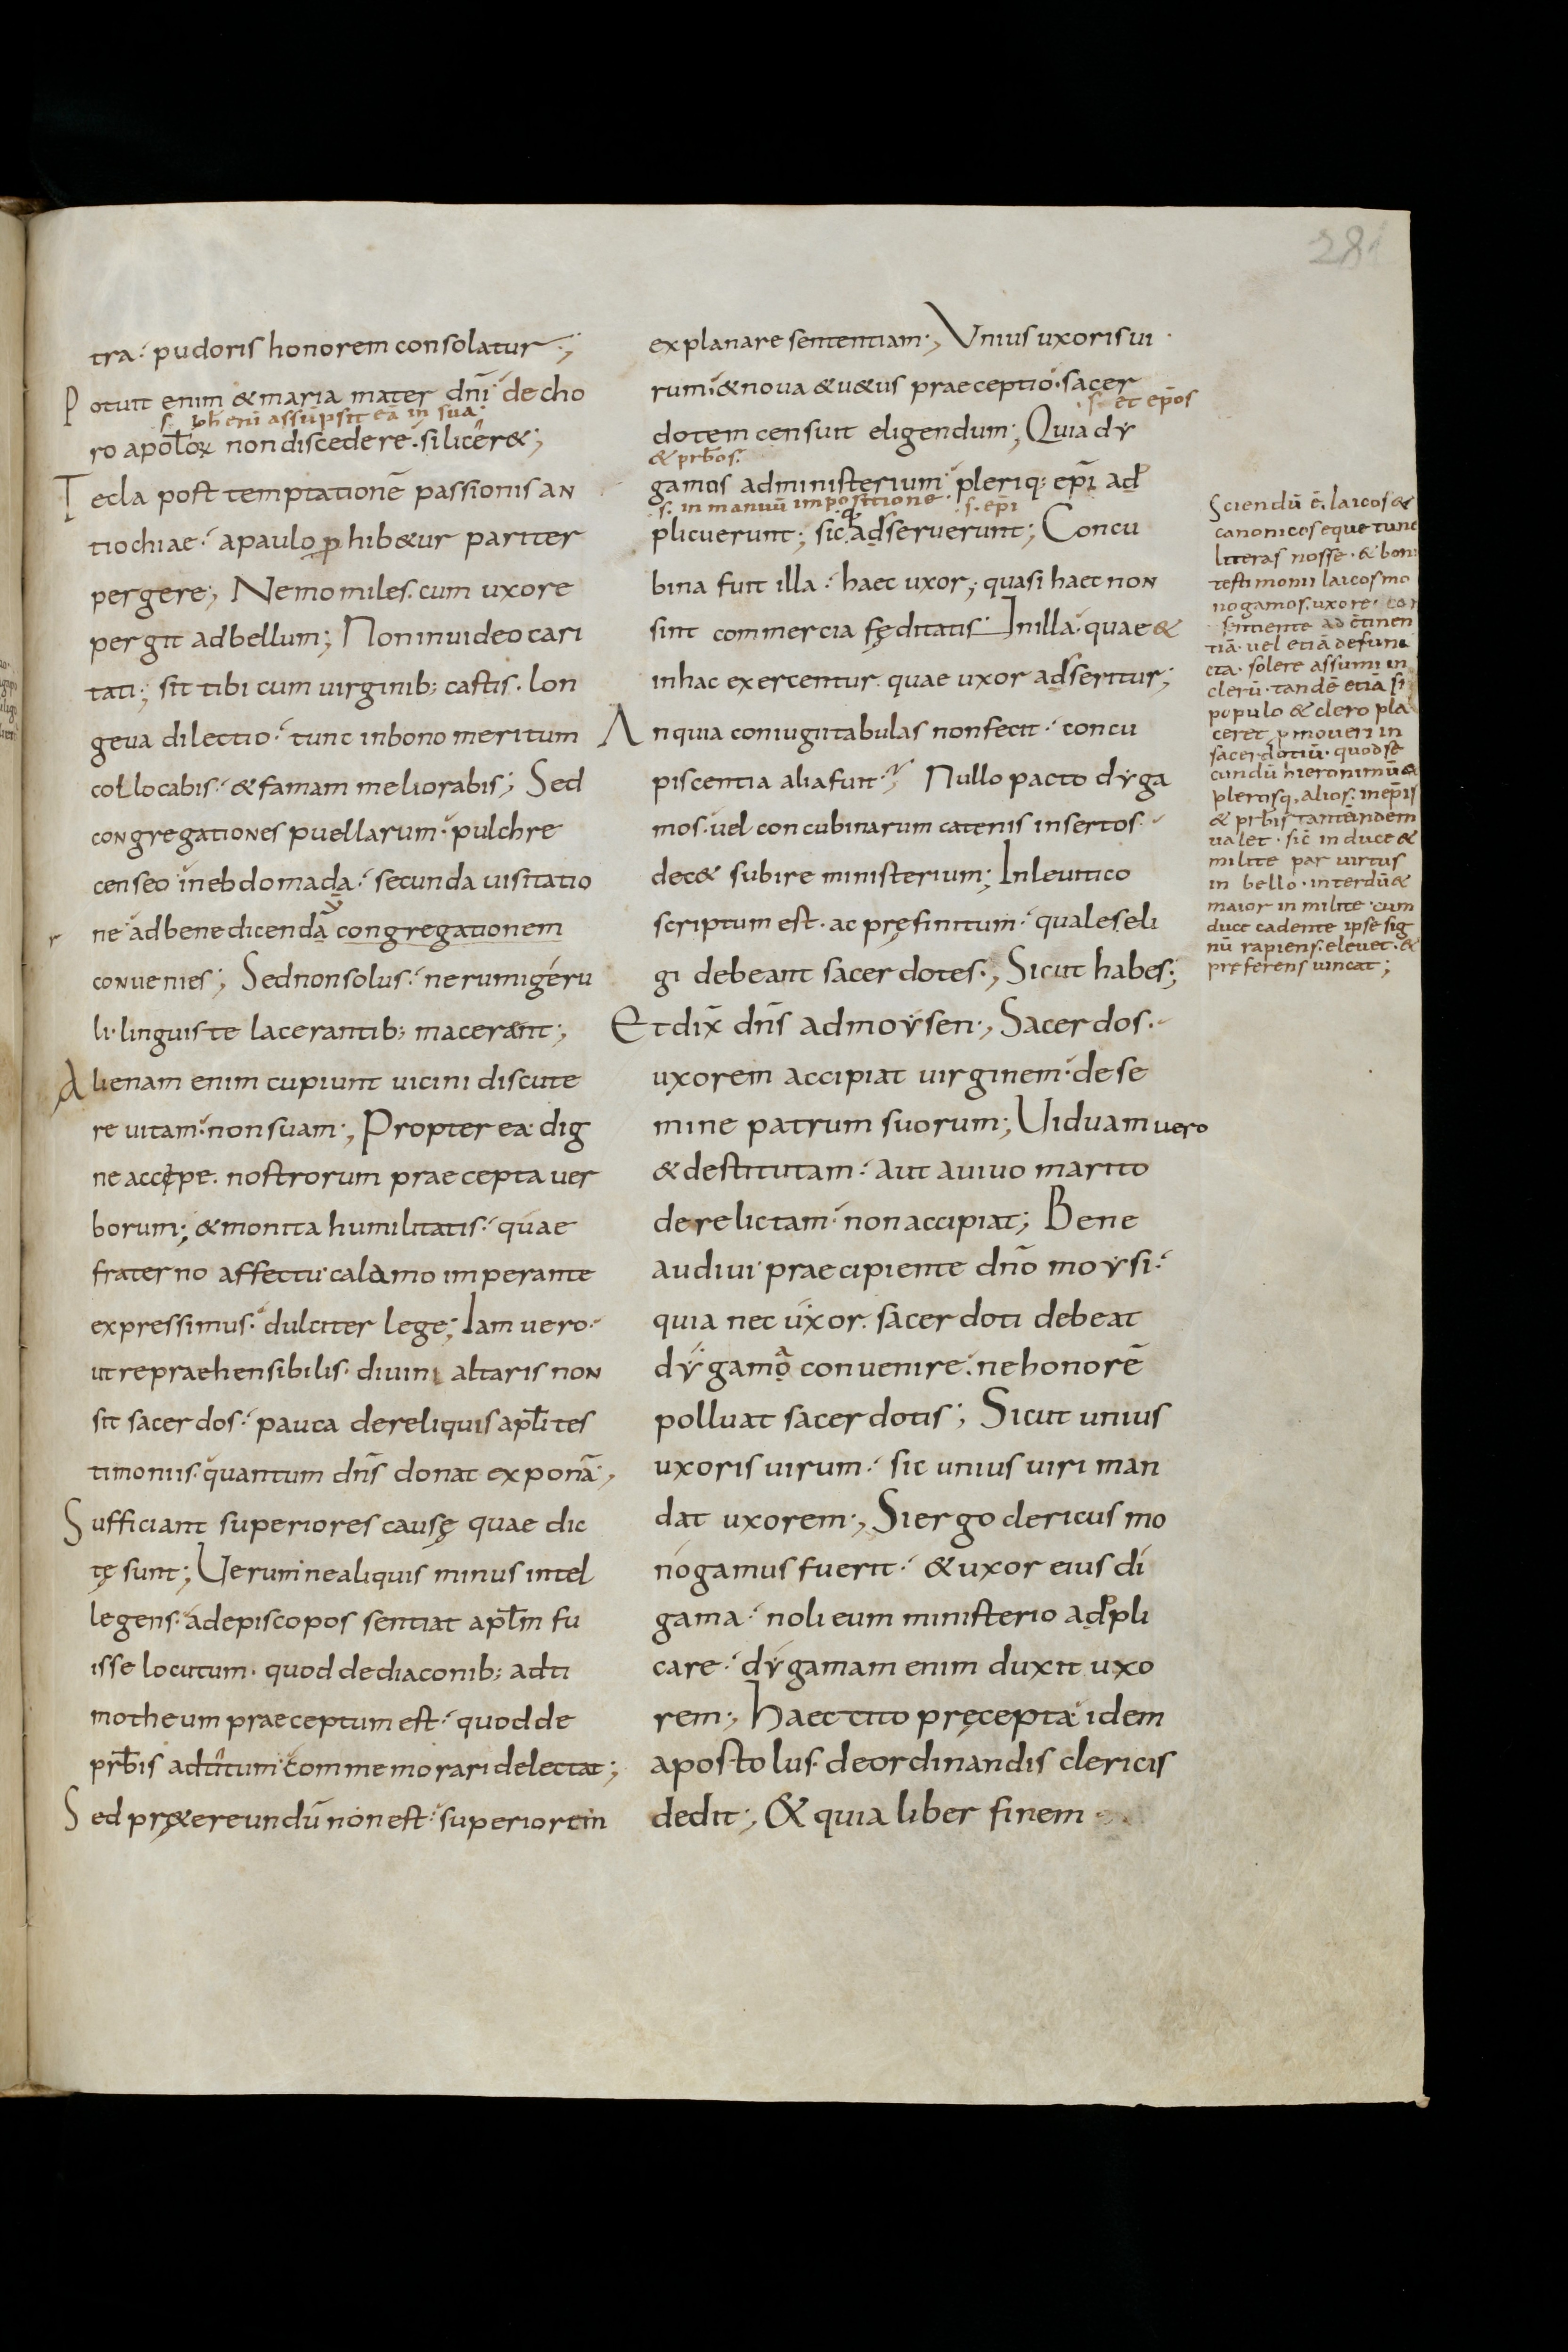 281
tra· pudoris honorem consolatur·;
Potuit enim & maria mater dn̄i· de cho
s. Ioh̄ eni assūpsit eā in sua·
ro apoł̄oꝝ non discedere· si licer&;
Tecla post temptationē passionis an
tiochiae· a paulo ꝓhib&ur pariter
pergere; Nemo miles· cum uxore
pergit ad bellum; Non inuideo cari
tati·; sit tibi cum uirginib; castis· lon
geua dilectio· tunc in bono meritum
collocabis· & famam meliorabis; Sed
congregationes puellarum· pulchre
censeo in ebdomada· secunda uisitatio
ne ad benedicendā congregationem
conuenies; Sed non solus· ne rumigeru
li· linguis te lacerantib; macerent;
Alienam enim cupiunt uicini discute
re uitam· non suam·; Propterea· dig
ne accipe· nostrorum praecepta uer
borum; & monita humilitatis· quae
fraterno affectu· calamo imperante
expressimus· dulciter lege; Iam uero·
ut repraehensibilis· diuini altaris non
sit sacerdos· pauca de reliquis apłi tes
timoniis· quantum dn̄s donat exponā·;
Sufficiant superiores causę quae dic
tę sunt; Uerum ne aliquis minus intel
legens· ad episcopos sentiat apłm fu
isse locutum· quod de diaconib; ad ti
motheum praeceptum est· quod de
prb̄is ad titum· commemorari delectat;
Sed pręt&ereundū non est· superiorem
explanare sententiam·; Unius uxoris ui
rum· & noua & u&us praeceptio· sacer
s· et ep̄os
dotem censuit eligendum; Quia dy
& prb̄os·
gamos ad ministerium· pleriq; ep̄i ad
s· in manuū impositione· s· ep̄i
plicuerunt; sic adseruerunt; Concu
bina fuit illa· haec uxor; quasi haec non
sint commercia fęditatis· In illa· quae &
in hac exercentur quae uxor adseritur;
An quia coniugii tabulas non fecit· concu
piscentia alia fuit· Nullo pacto dyga
mos· uel concubinarum catenis insertos·
dec& subire ministerium; In leuitico
scriptum est· ac pręfinitum· quales eli
gi debeant sacerdotes·; Sicut habes;
Et dix̄ dn̄s ad moysen·; Sacerdos·
uxorem accipiat uirginem· de se
mine patrum suorum; Uiduam uero
& destitutam· aut a uiuo marito
derelictam· non accipiat; Bene
audiui· praecipiente dn̄o moysi·
quia nec uxor· sacerdoti debeat
dygama conuenire· ne honorē
polluat sacerdotis; Sicut unius
uxoris uirum· sic unius uiri man
dat uxorem·; Si ergo clericus mo
nogamus fuerit· & uxor eius di
gama· noli eum ministerio adpli
care· dygamam enim duxit uxo
rem·; Haec tito pręcepta· idem
apostolus· de ordinandis clericis
dedit; & quia liber finem
Sciendū ē· laicos &
canonicos eque tunc
literas nosse· & boni
testimonii laicos mo
nogamos· uxore· con
sentiente ad c̄tinen
tiā· uel etiā defun
cta· solere assumi in
clerū· tandē etiā si
populo & clero pla
ceret ꝓmoueri in
sacerdotiū· quod se
cundū hieronimū &
plerosq, alios· in ep̄is
& prb̄is tantūndem
ualet· sic in duce &
milite par uirtus
in bello· interdū &
maior in milite· cum
duce cadente ipse sig
nū rapiens· eleuet· &
pręferens uincat;